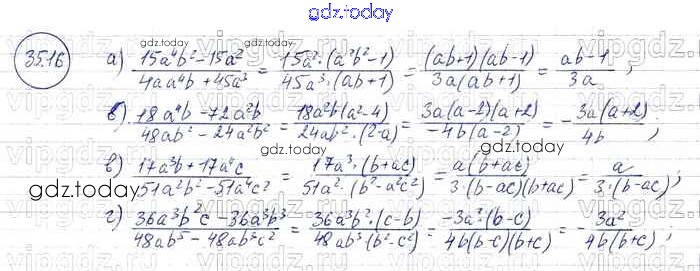 gdz.today
35.16 а) (15a⁴b² − 15a²)/(4aa⁴b + 45a³) = (15a²·(a²b² − 1))/(45a³·(ab + 1)) = ((ab+1)(ab−1))/(3a(ab+1)) = (ab−1)/(3a);
б) (18a⁴b − 72a²b)/(48ab² − 24a²b²) = (18a²b(a²−4))/(24ab²·(2−a)) = (3a(a−2)(a+2))/(−4b(a−2)) = −(3a(a+2))/(4b);
в) (17a³b + 17a⁴c)/(51a²b² − 51a⁴c²) = (17a³·(b+ac))/(51a²·(b²−a²c²)) = (a(b+ac))/(3·(b−ac)(b+ac)) = a/(3·(b−ac));
г) (36a³b²c − 36a³b³)/(48ab⁵ − 48ab³c²) = (36a³b²·(c−b))/(48ab³·(b²−c²)) = (−3a²(b−c))/(4b(b−c)(b+c)) = −(3a²)/(4b(b+c));